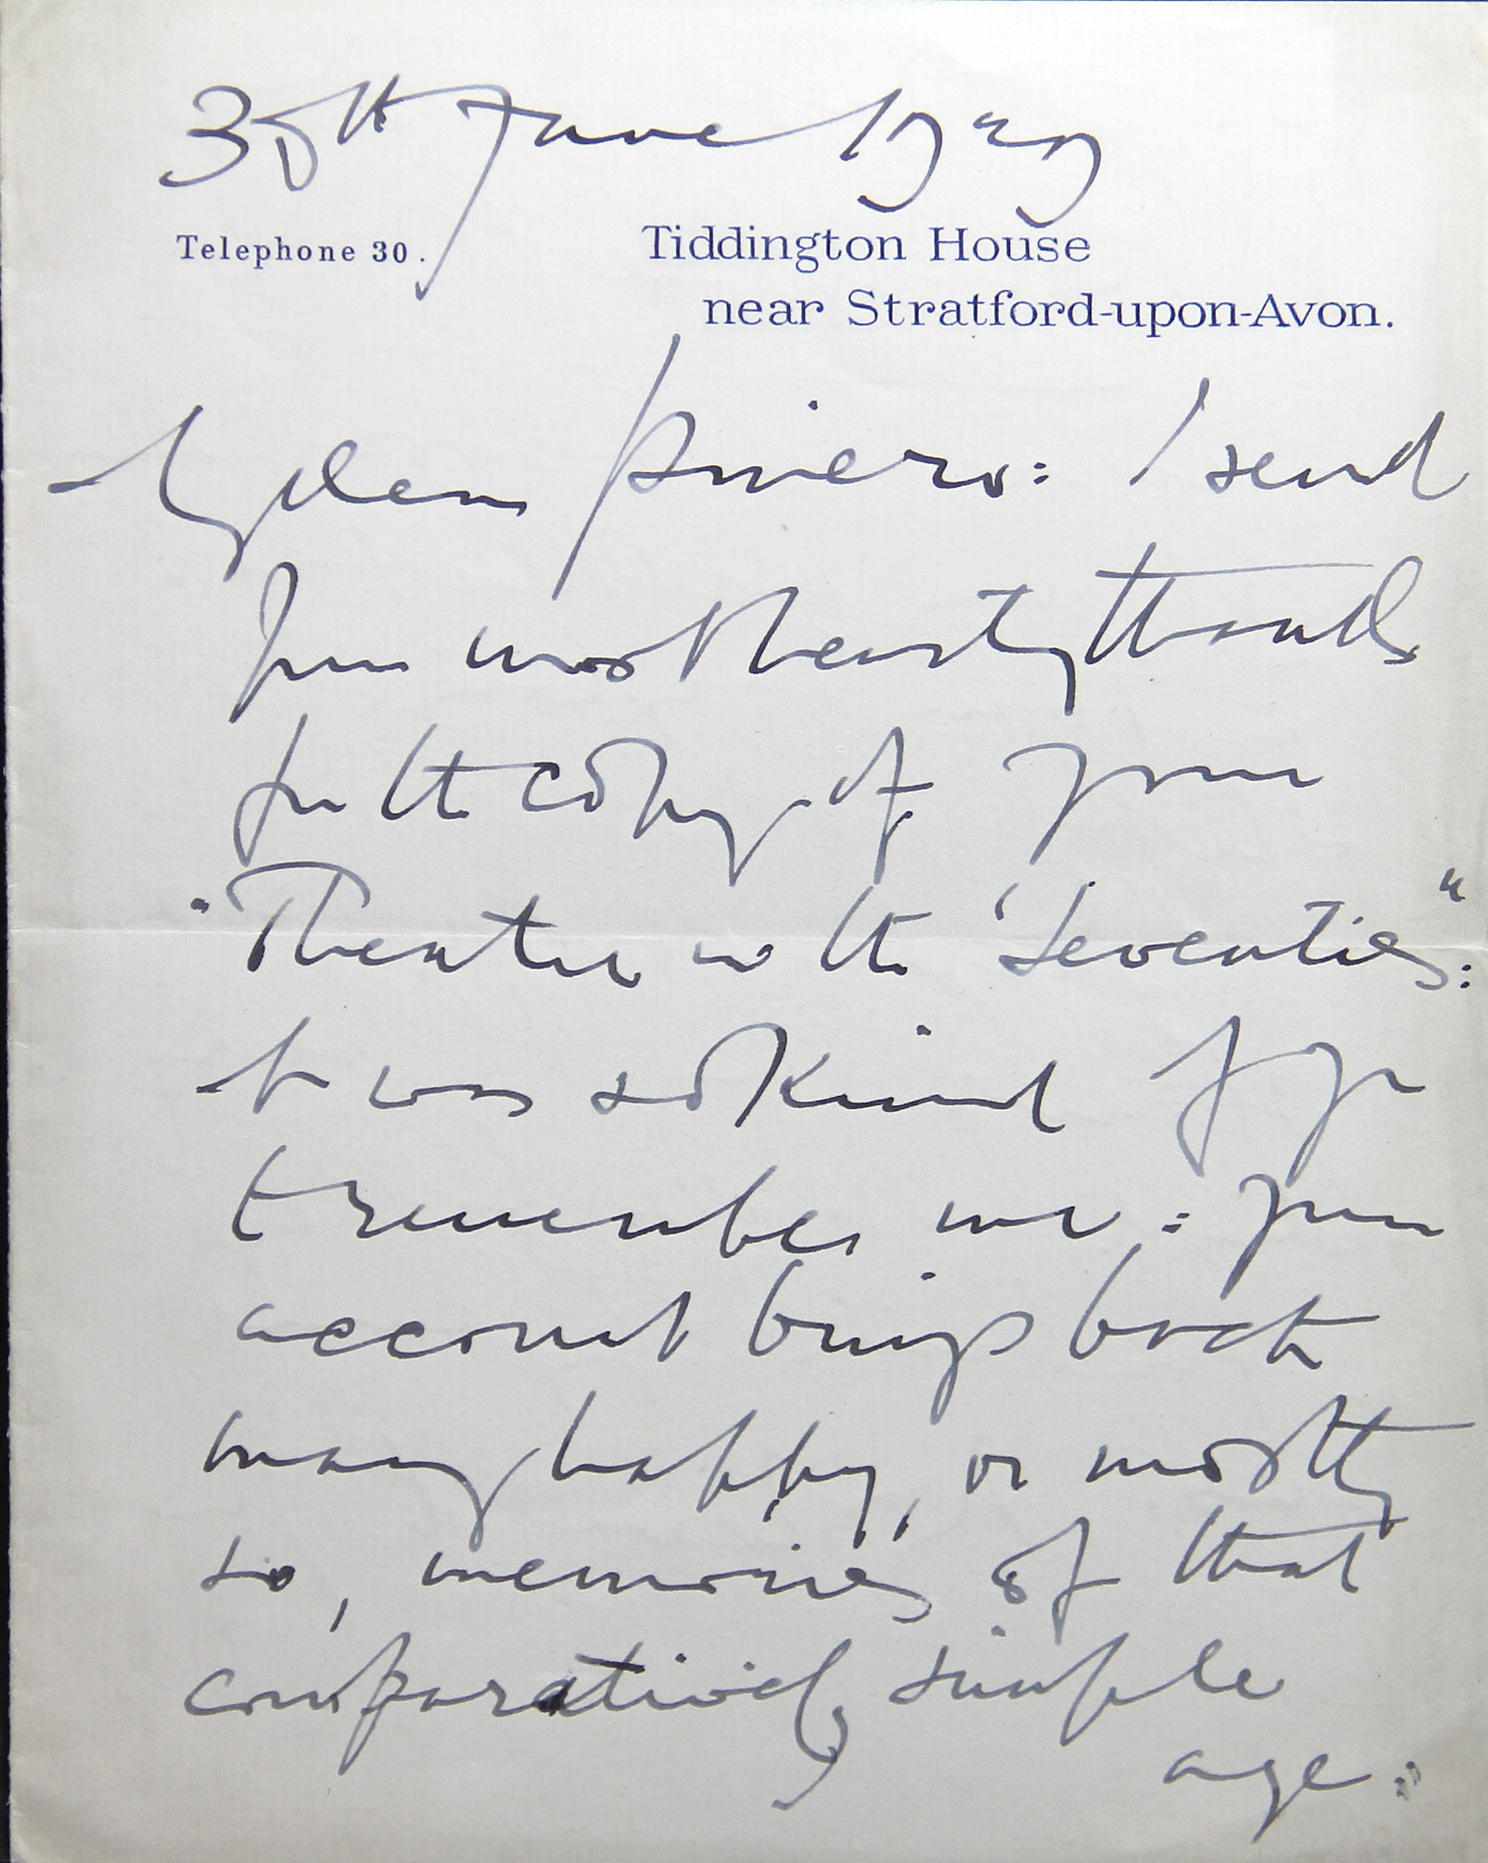 30th June 1929
Telephone 30.
Tiddington House
near Stratford-upon-Avon.
My dear Pinero: I send
you most hearty thanks
for the copy of your
"Theatre in the 'Seventies":
It was so kind of you
to remember me: your
account brings back
many happy, or mostly
so, memories of that
comparatively simple
age.